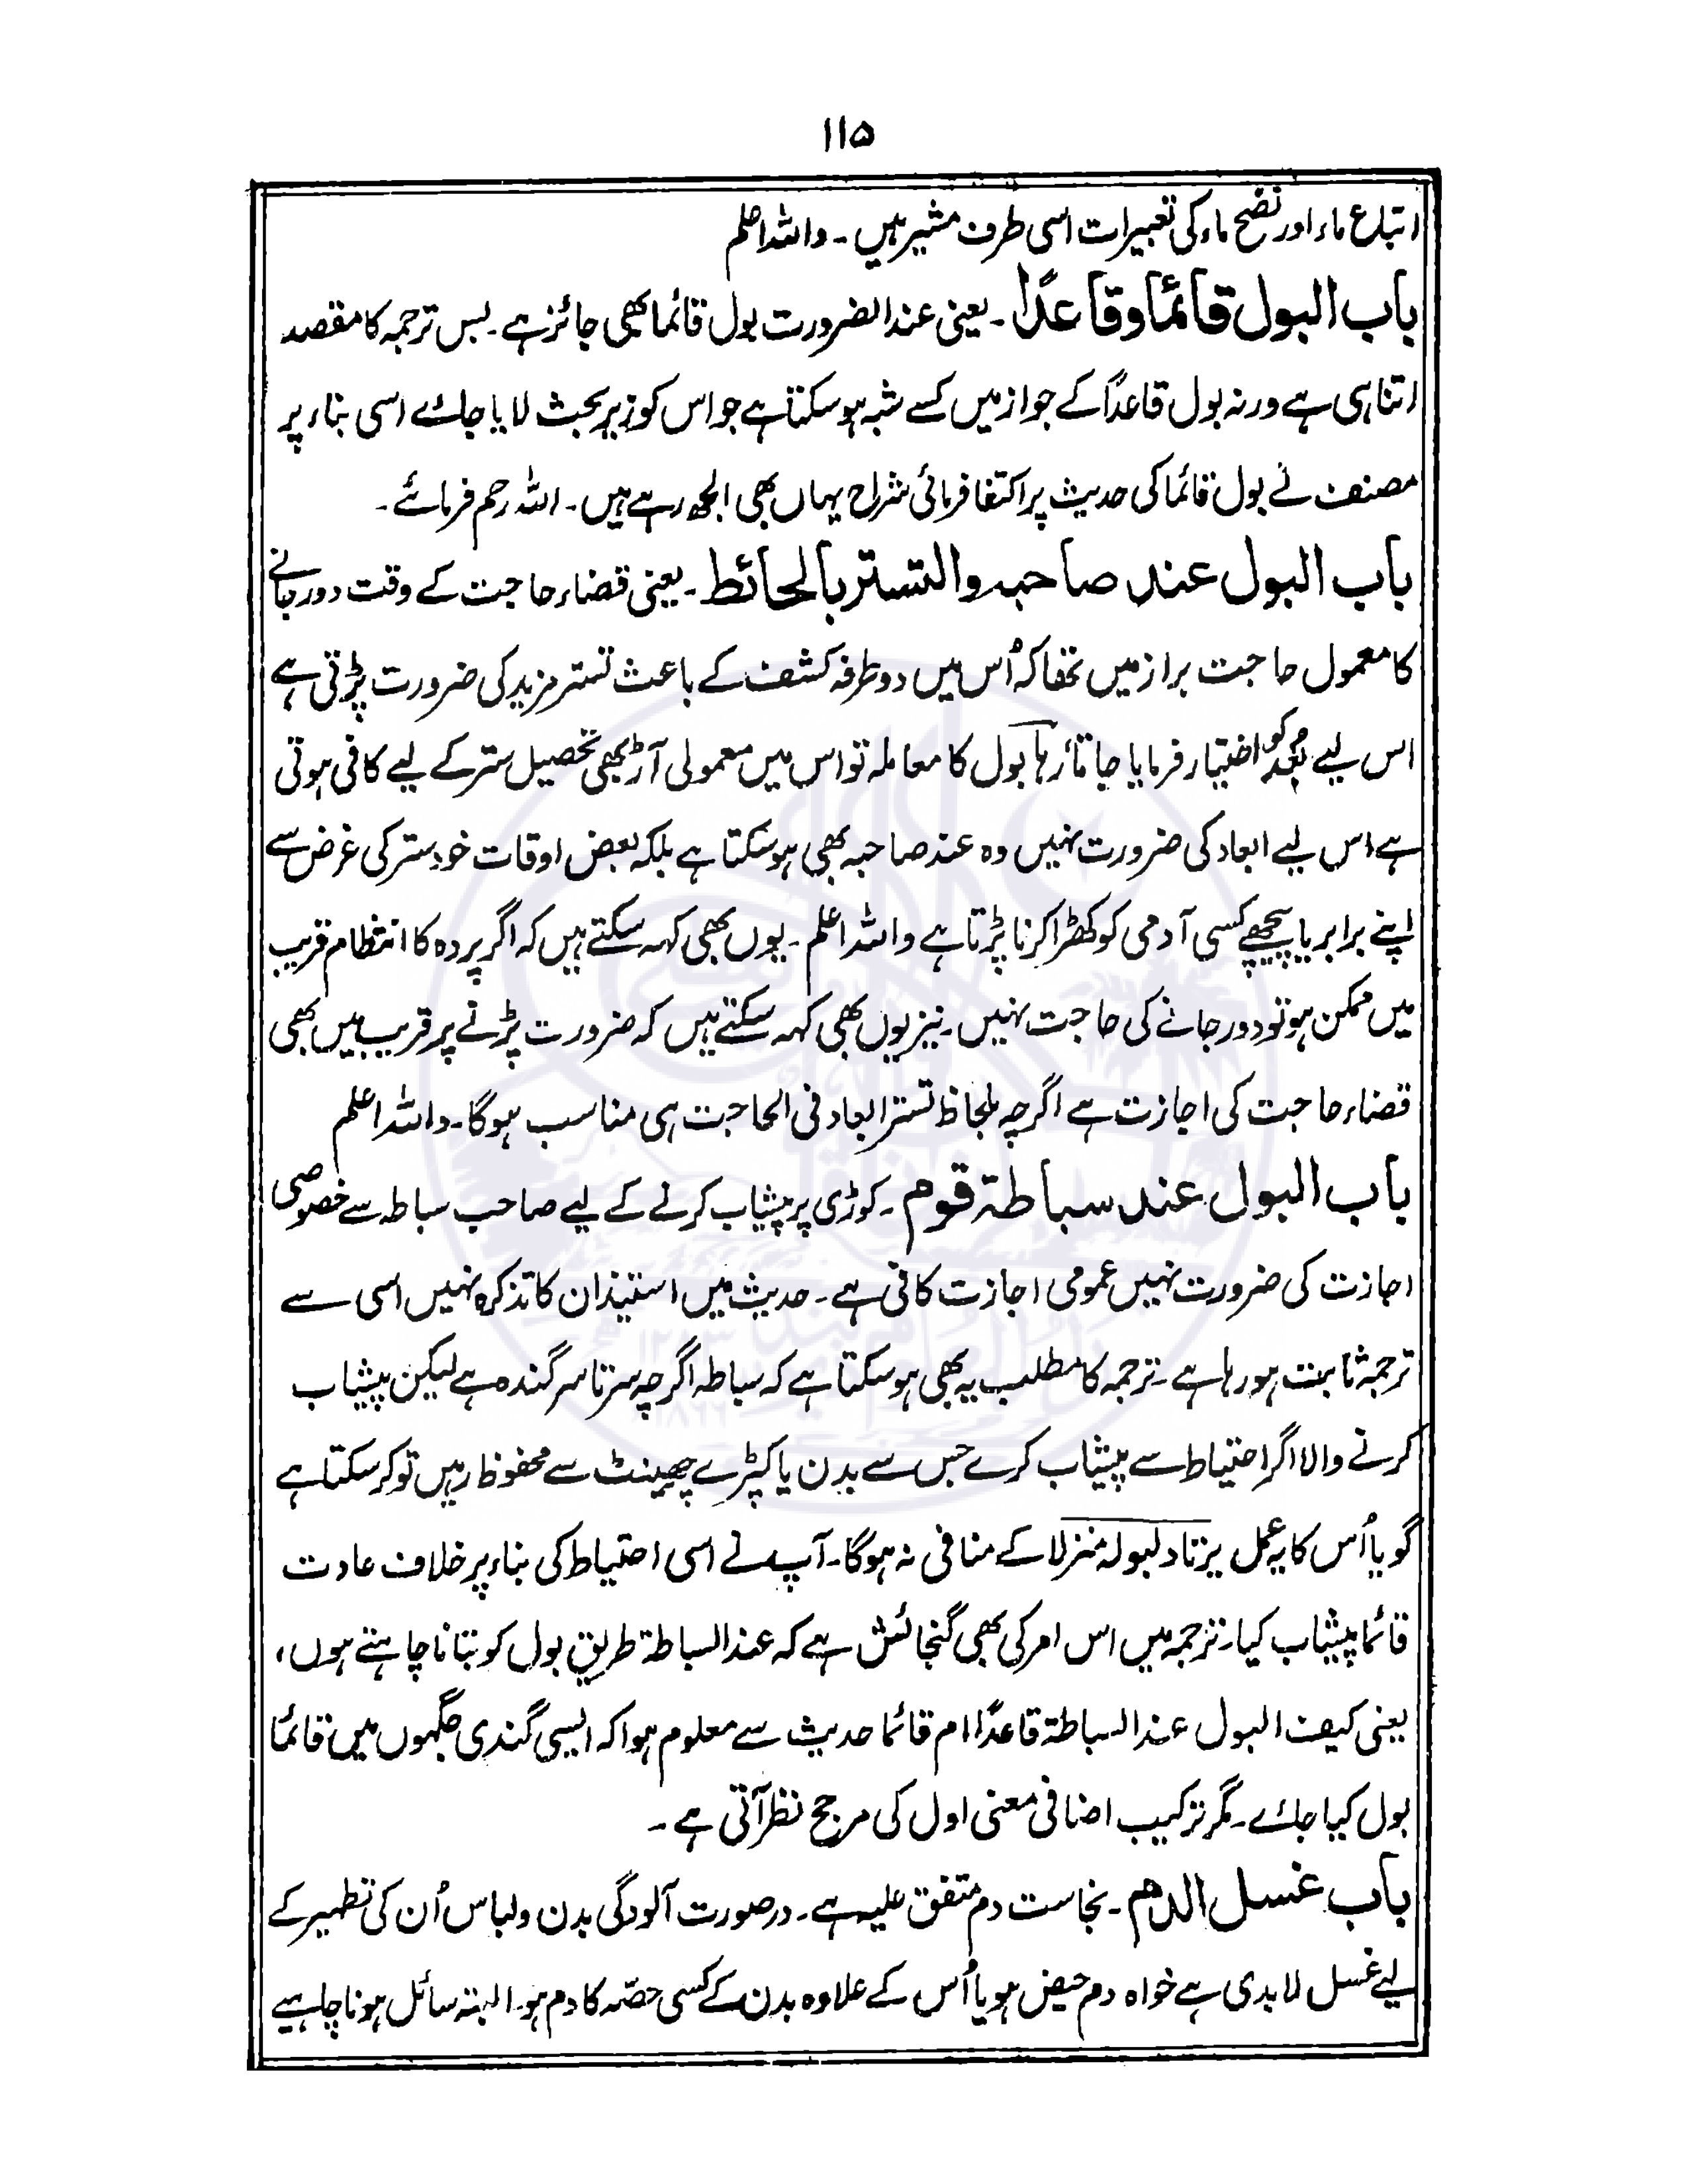 ۱۱۵
اتباع ماء اور نضح ماء کی تعبیرات اسی طرف مشیر ہیں ۔ واللہ اعلم
باب البول قائما وقاعدًا ۔ یعنی عند الضرورت بول قائما بھی جائز ہے ۔ بس ترجمہ کا مقصد
اتنا ہی ہے ورنہ بول قاعدًا کے جواز میں کسے شبہ ہو سکتا ہے جو اس کو زیر بحث لایا جائے اسی بناء پر
مصنف نے بول قائما کی حدیث پر اکتفا فرمائی شراح یہاں بھی الجھ رہے ہیں ۔ اللہ رحم فرمائے ۔
باب البول عند صاحبہ والتستر بالحائط ۔ یعنی قضاء حاجت کے وقت دور جانے
کا معمول حاجت براز میں تھا کہ اُس میں دو طرفہ کشف کے باعث تستر مزید کی ضرورت پڑتی ہے
اس لیے بُعد کو اختیار فرمایا جاتا رہا بول کا معاملہ تو اس میں معمولی آڑ بھی تحصیل ستر کے لیے کافی ہوتی
ہے اس لیے ابعاد کی ضرورت نہیں وہ عند صاحبہ بھی ہو سکتا ہے بلکہ بعض اوقات خود ستر کی غرض سے
اپنے برابر یا پیچھے کسی آدمی کو کھڑا کرنا پڑتا ہے واللہ اعلم ۔ یوں بھی کہہ سکتے ہیں کہ اگر پردہ کا انتظام قریب
میں ممکن ہو تو دور جانے کی حاجت نہیں ۔ نیز یوں بھی کہہ سکتے ہیں کہ ضرورت پڑنے پر قریب میں بھی
قضاء حاجت کی اجازت ہے اگرچہ بلحاظ تستر ابعاد فی الحاجت ہی مناسب ہوگا ۔ واللہ اعلم
باب البول عند سباطۃ قوم ۔ کوڑی پر پیشاب کرنے کے لیے صاحب سباطہ سے خصوصی
اجازت کی ضرورت نہیں عمومی اجازت کافی ہے ۔ حدیث میں استیذان کا تذکرہ نہیں اسی سے
ترجمہ ثابت ہو رہا ہے ۔ ترجمہ کا مطلب یہ بھی ہو سکتا ہے کہ سباطہ اگرچہ سرتاسر گندہ ہے لیکن پیشاب
کرنے والا اگر احتیاط سے پیشاب کرے جس سے بدن یا کپڑے چھینٹ سے محفوظ رہیں تو کر سکتا ہے
گویا اُس کا یہ عمل یرتاد لبولہ منزلا کے منافی نہ ہوگا ۔ آپ نے اسی احتیاط کی بناء پر خلاف عادت
قائما پیشاب کیا ۔ ترجمہ میں اس امر کی بھی گنجائش ہے کہ عند السباطۃ طریق بول کو بتانا چاہتے ہوں ،
یعنی کیف البول عند السباطۃ قاعدًا ام قائما حدیث سے معلوم ہوا کہ ایسی گندی جگہوں میں قائما
بول کیا جائے ۔ مگر ترکیب اضافی معنی اول کی مرجح نظر آتی ہے ۔
باب غسل الدم ۔ نجاست دم متفق علیہ ہے ۔ در صورت آلودگی بدن ولباس اُن کی تطہیر کے
لیے غسل لابدی ہے خواہ دم حیض ہو یا اُس کے علاوہ بدن کے کسی حصّہ کا دم ہو البتہ سائل ہونا چاہیے